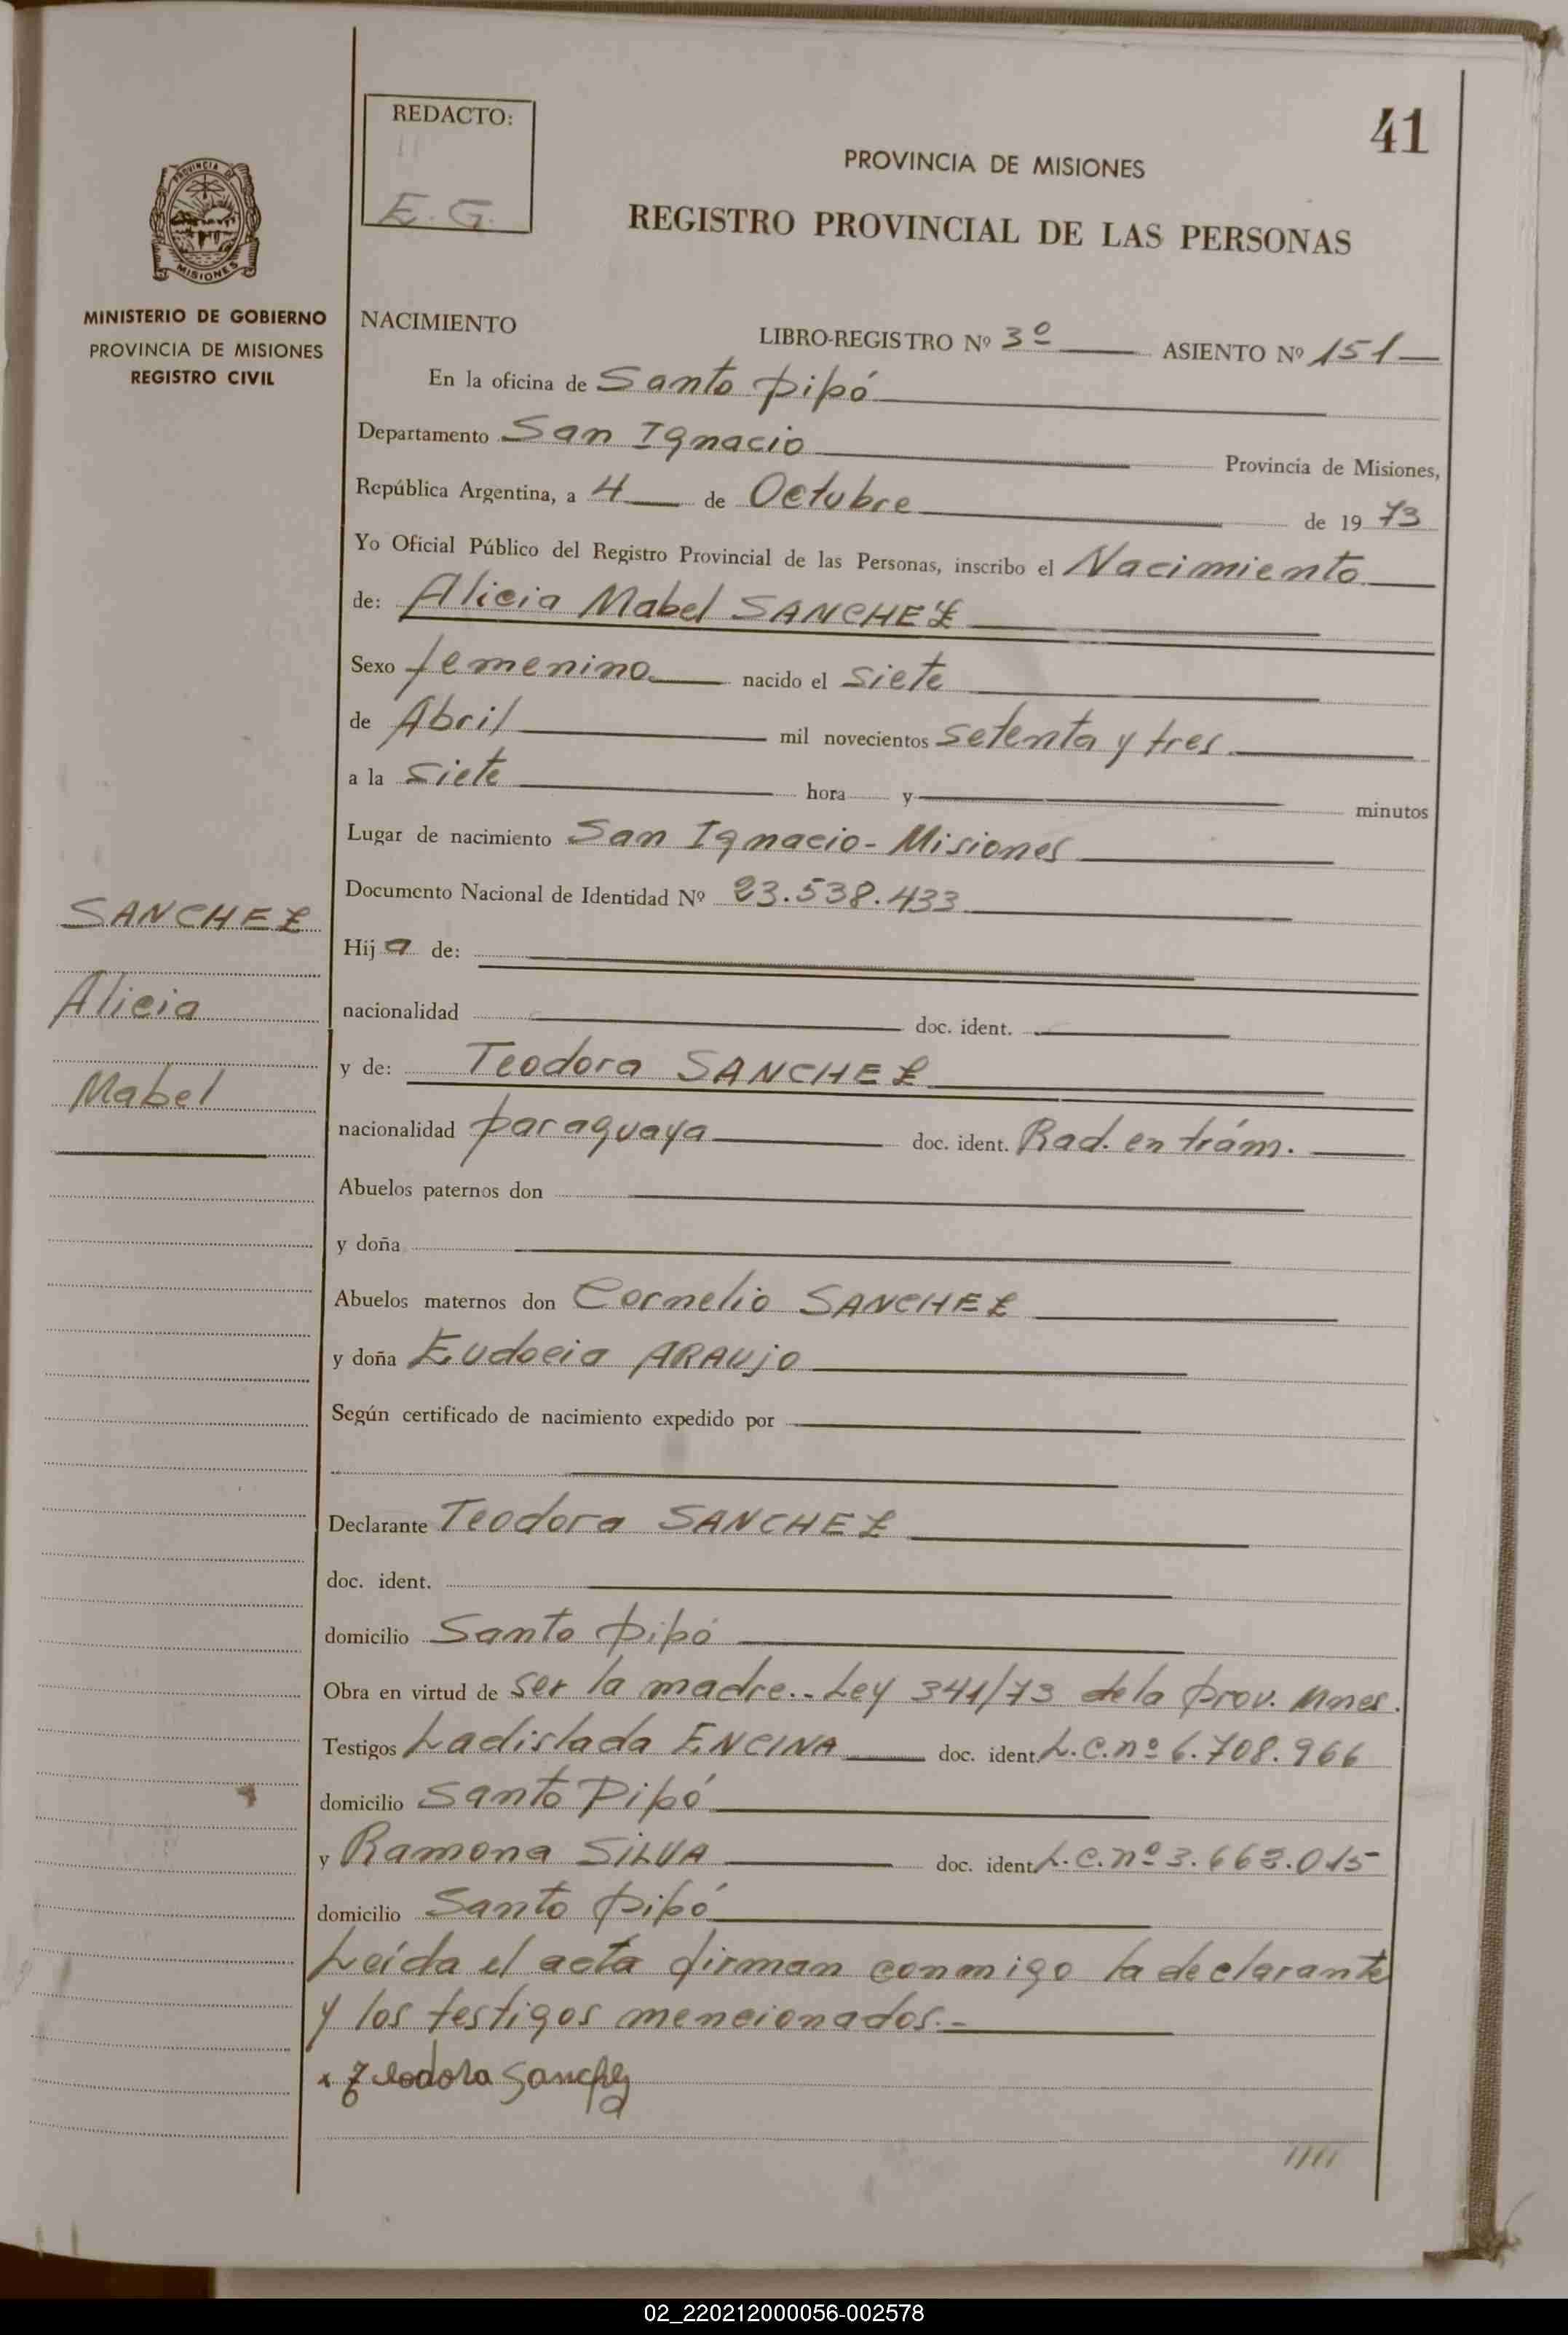 41
REDACTO:
E. G.
PROVINCIA DE MISIONES
REGISTRO PROVINCIAL DE LAS PERSONAS
PROVINCIA DE
MISIONES
MINISTERIO DE GOBIERNO
PROVINCIA DE MISIONES
REGISTRO CIVIL
NACIMIENTO LIBRO-REGISTRO Nº 3º ASIENTO Nº 151
En la oficina de Santo Pipó
Departamento San Ignacio Provincia de Misiones,
República Argentina, a 4 de Octubre de 1973
Yo Oficial Público del Registro Provincial de las Personas, inscribo el Nacimiento
de: Alicia Mabel SANCHEZ
Sexo femenino nacido el siete
de Abril mil novecientos setenta y tres
a la siete hora y minutos
Lugar de nacimiento San Ignacio - Misiones
Documento Nacional de Identidad Nº 23.538.433
SANCHEZ
Alicia
Mabel
Hija de:
nacionalidad doc. ident.
y de: Teodora SANCHEZ
nacionalidad paraguaya doc. ident. Rad. en trám.
Abuelos paternos don
y doña
Abuelos maternos don Cornelio SANCHEZ
y doña Eudocia ARAUJO
Según certificado de nacimiento expedido por
Declarante Teodora SANCHEZ
doc. ident.
domicilio Santo Pipó
Obra en virtud de ser la madre.- Ley 341/73 de la Prov. Mnes.
Testigos Ladislada ENCINA doc. ident. L.C. nº 6.708.966
domicilio Santo Pipó
y Ramona SILVA doc. ident. L.C. nº 3.663.015
domicilio Santo Pipó
Leída el acta firman conmigo la declarante
y los testigos mencionados.-
x Teodora Sanchez
////
02_220212000056-002578